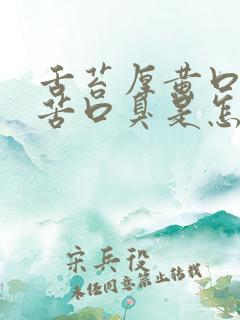 舌苔厚黄口
苦口臭是怎
宋兵役
未经同意禁止转载